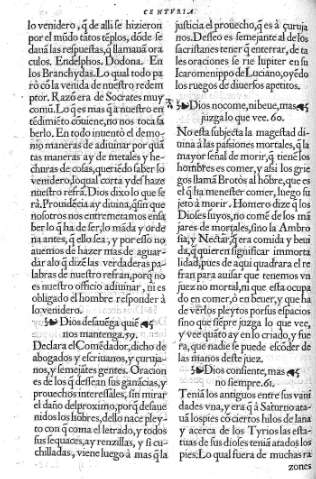 CENTVRIA
lo venidero, q̃ de alli se hizieron
por el mũdo tãtos tẽplos, dõde se
dauã las respuestas, q̃ llamauã ora
culos. Endelphos. Dodona. En
los Branchydas. Lo qual todo pa
rò cõ la venida de nuestro redem
ptor. Razõ era de Socrates muy
comũ. Lo q̃ es mas q̃ a nuestro en
tẽdimiẽto cõuiene, no nos toca sa
berlo. En todo inuentò el demo-
nio maneras de adiuinar por quã
tas maneras ay de metales y he-
churas de cosas, querido saber lo
venidero, lo qual corta y deshaze
nuestro refrã. Dios dixo lo que se
rà. Prouidẽcia ay diuina, q̃ sin que
nosotros nos entremetamos en sa
ber lo q̃ ha de ser, lo mãda y orde
na antes, q̃ ello sea, y por esso no
auemos de hazer mas de aguar-
dar a lo q̃ dizẽ las verdaderas pa-
labras de nuestro refran, porq̃ no
es nuestro officio adiuinar, ni es
obligado el hombre responder à
lo venidero.
Dios desauẽga quiẽ
nos mantenga. 59.
Declara el Comẽdador, dicho de
abogados y escriuanos, y curuja-
nos, y semejãtes gentes. Oracion
es de los q̃ dessean sus ganãcias, y
prouechos interessales, sin mirar
el daño del proximo, porq̃ desaue
nidos los hõbres, dello nace pley-
to con q̃ coma el letrado, y todos
sus sequaces, ay renzillas, y si cu-
chilladas, viene luego à mas q̃ la
justicia el prouecho, q̃ es à çuruja
nos. Desseo es semejante al de los
sacristanes tener q̃ enterrar, de ta
les oraciones se rie Iupiter en su
Icaromenippo de Luciano, oyẽdo
los ruegos de diuersos apetitos.
Dios no come, ni beue, mas
juzga lo que vee. 60.
No esta subjecta la magestad di-
uina à las passiones mortales, q̃ la
mayor señal de morir, q̃ tienẽ los
hombres es comer, y assi los grie
gos llamã Brotòs al hõbre, que es
el q̃ ha menester comer, luego su
jeto à morir. Homero dize q̃ los
Dioses suyos, no comẽ de los mã
jares de mortales, sino la Ambro
sia, y Nectàr, q̃ era comida y beui
da, q̃ quieren significar inmorta
lidad, pues de aqui quadrara el re
fran para auisar que tenemos vn
juez no mortal, ni que esta ocupa
do en comer, ò en beuer, y que ha
de verlos pleytos por sus espacios
sino que siẽpre juzga lo que vee,
y vee quãto ay en lo criado, y fue
ra, que nadie se puede escõder de
las manos deste juez.
Dios consiente, mas
no siempre. 61.
Teniã los antiguos entre sus vani
dades vna, y era q̃ à Saturno ata-
uã los pies cõ ciertos hilos de lana
y acerca de los Tyrios las esta-
tuas de sus dioses teniã atados los
pies: Lo qual fuera de muchas ra
zones